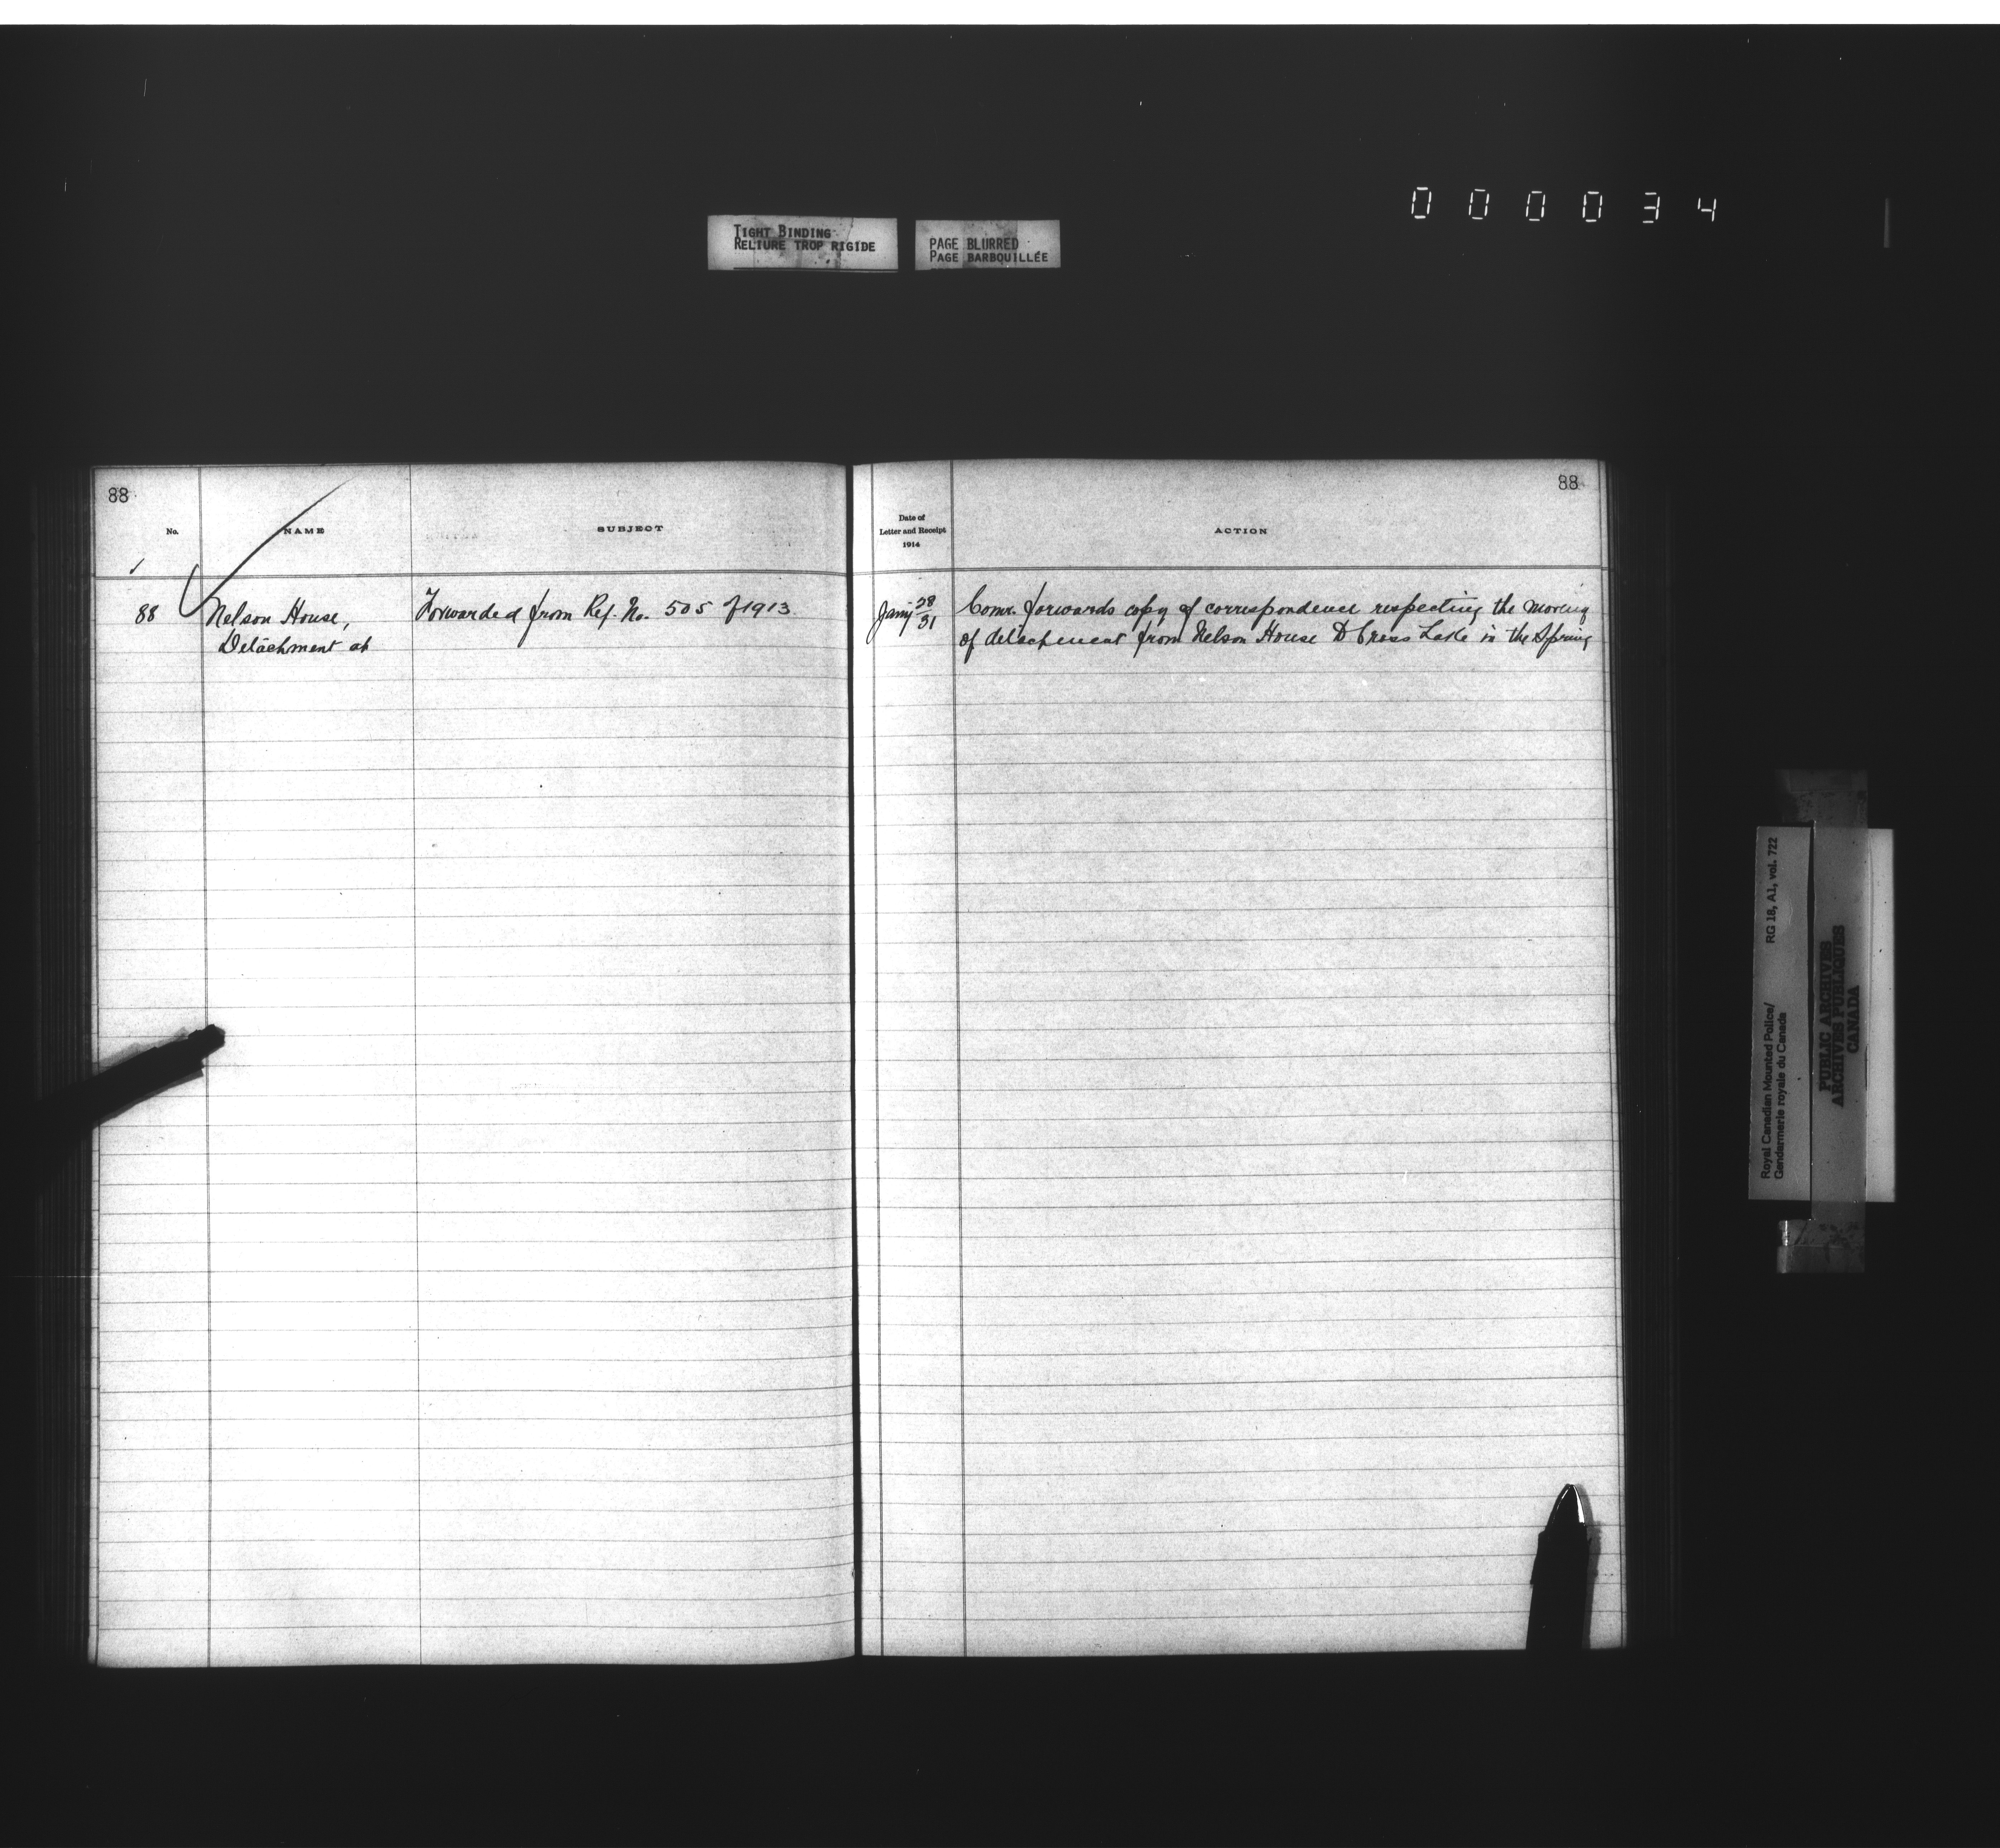 000034
TIGHT BINDING
RELIURE TROP RIGIDE
PAGE BLURRED
PAGE BARBOUILLÉE
88
No.
NAME
SUBJECT
88 Nelson House, Forwarded from Ref. No. 505 of 1913.
Detachment at
88
Date of
Letter and Receipt
1914
ACTION
Jany 28/31 Comr. forwards copy of correspondence respecting the moving
of detachment from Nelson House to Cross Lake in the Spring
Royal Canadian Mounted Police/ RG 18, A1, vol. 722
Gendarmerie royale du Canada
PUBLIC ARCHIVES
ARCHIVES PUBLIQUES
CANADA